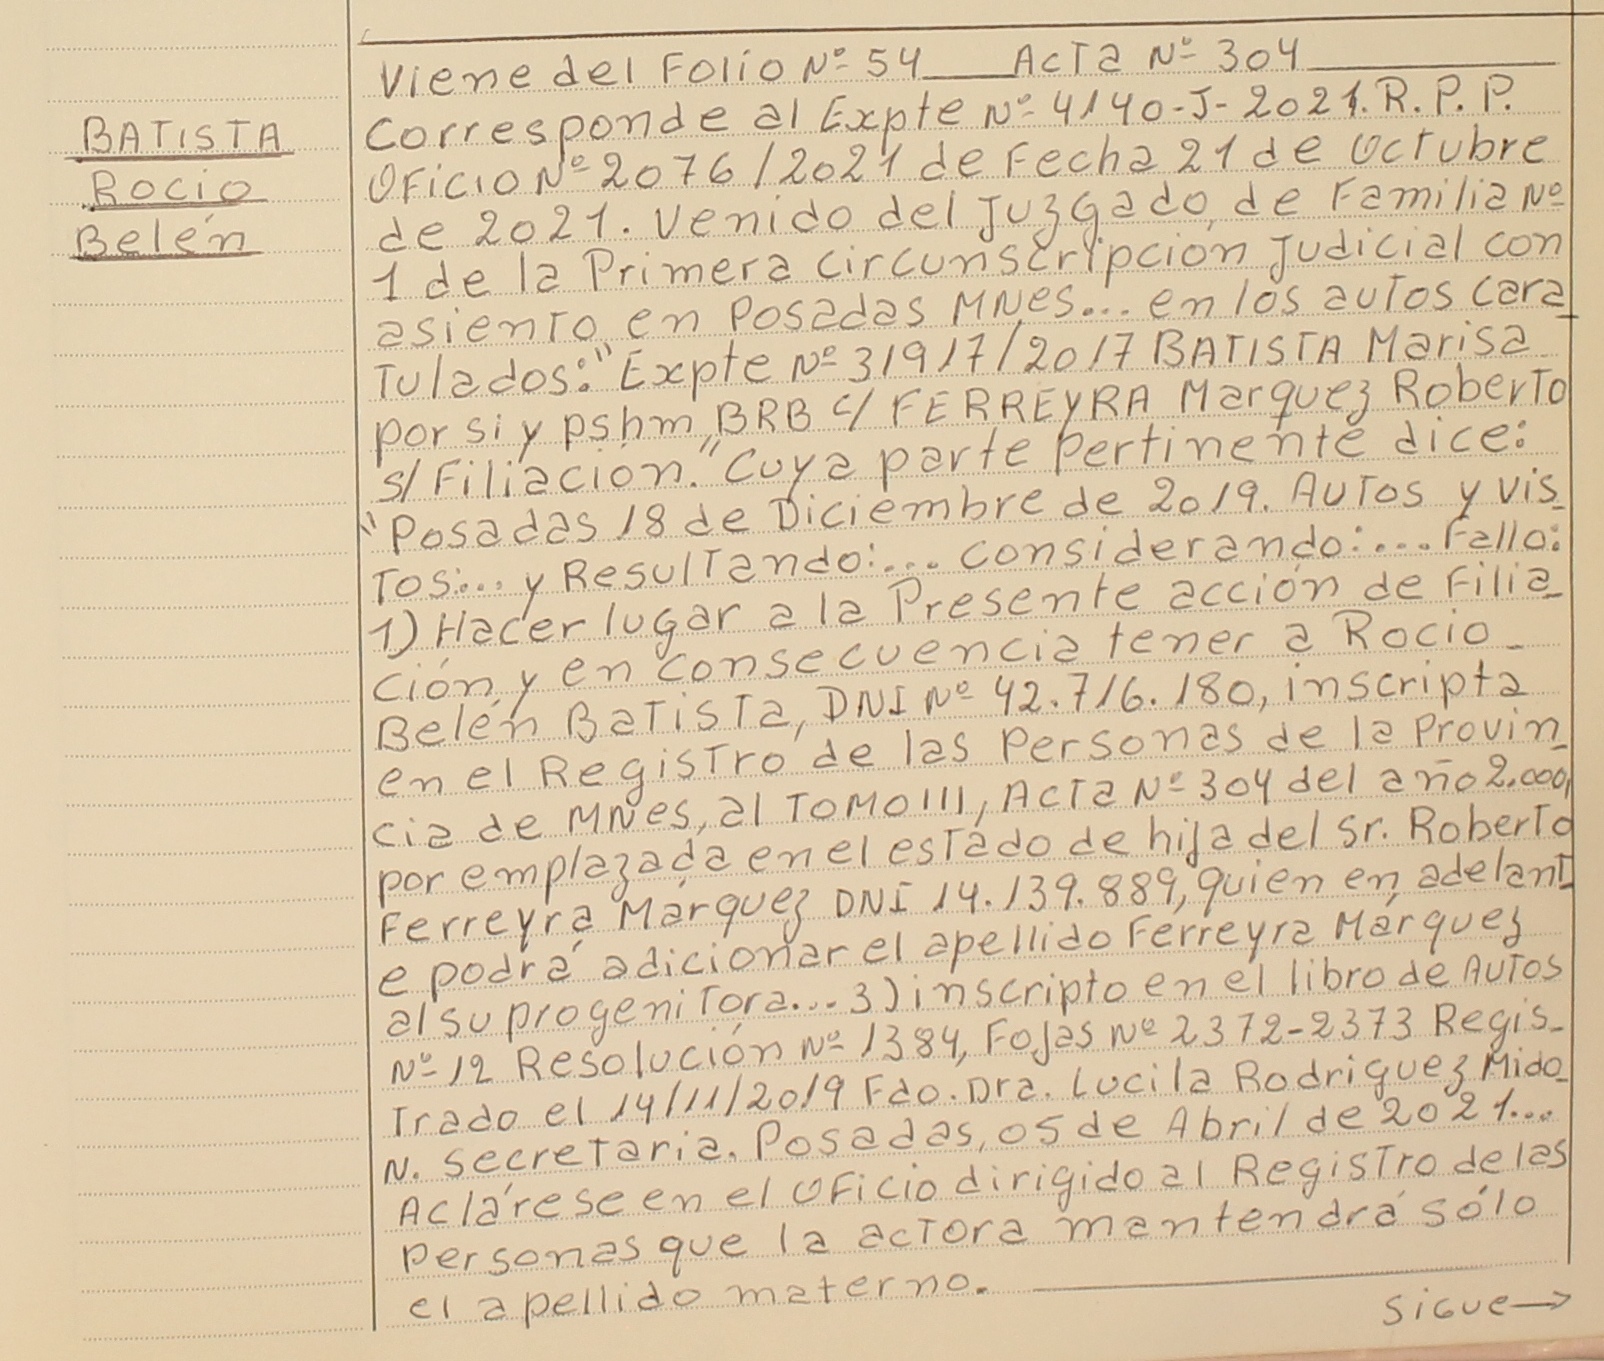 BATISTA
Rocio
Belén
Viene del Folio Nº 54 ___ Acta Nº 304
Corresponde al Expte Nº 4140-J-2021. R.P.P.
Oficio Nº 2076/2021 de Fecha 21 de Octubre
de 2021. Venido del Juzgado de Familia Nº
1 de la Primera circunscripción Judicial con
asiento en Posadas MNES... en los autos cara_
tulados: "Expte Nº 31917/2017 BATISTA Marisa
por si y pshm BRB c/ FERREYRA Marquez Roberto
s/ Filiación." Cuya parte pertinente dice:
"Posadas 18 de Diciembre de 2019. Autos y vis_
tos:... y Resultando:... considerando:... Fallo:
1) Hacer lugar a la Presente acción de Filia_
ción y en consecuencia tener a Rocio_
Belén Batista, DNI Nº 42.716.180, inscripta
en el Registro de las Personas de la Provin_
cia de MNes, al TOMO III, Acta Nº 304 del año 2.000,
por emplazada en el estado de hija del Sr. Roberto
Ferreyra Márquez DNI 14.139.889, quien en adelant_
e podrá adicionar el apellido Ferreyra Márquez
al su progenitora... 3) inscripto en el libro de Autos
Nº 12 Resolución Nº 1384, Fojas Nº 2372-2373 Regis_
trado el 14/11/2019 Fdo. Dra. Lucila Rodriguez Mido_
N. secretaria. Posadas, 05 de Abril de 2021...
Aclárese en el oficio dirigido al Registro de las
Personas que la actora mantendrá sólo
el apellido materno.
Sigue→